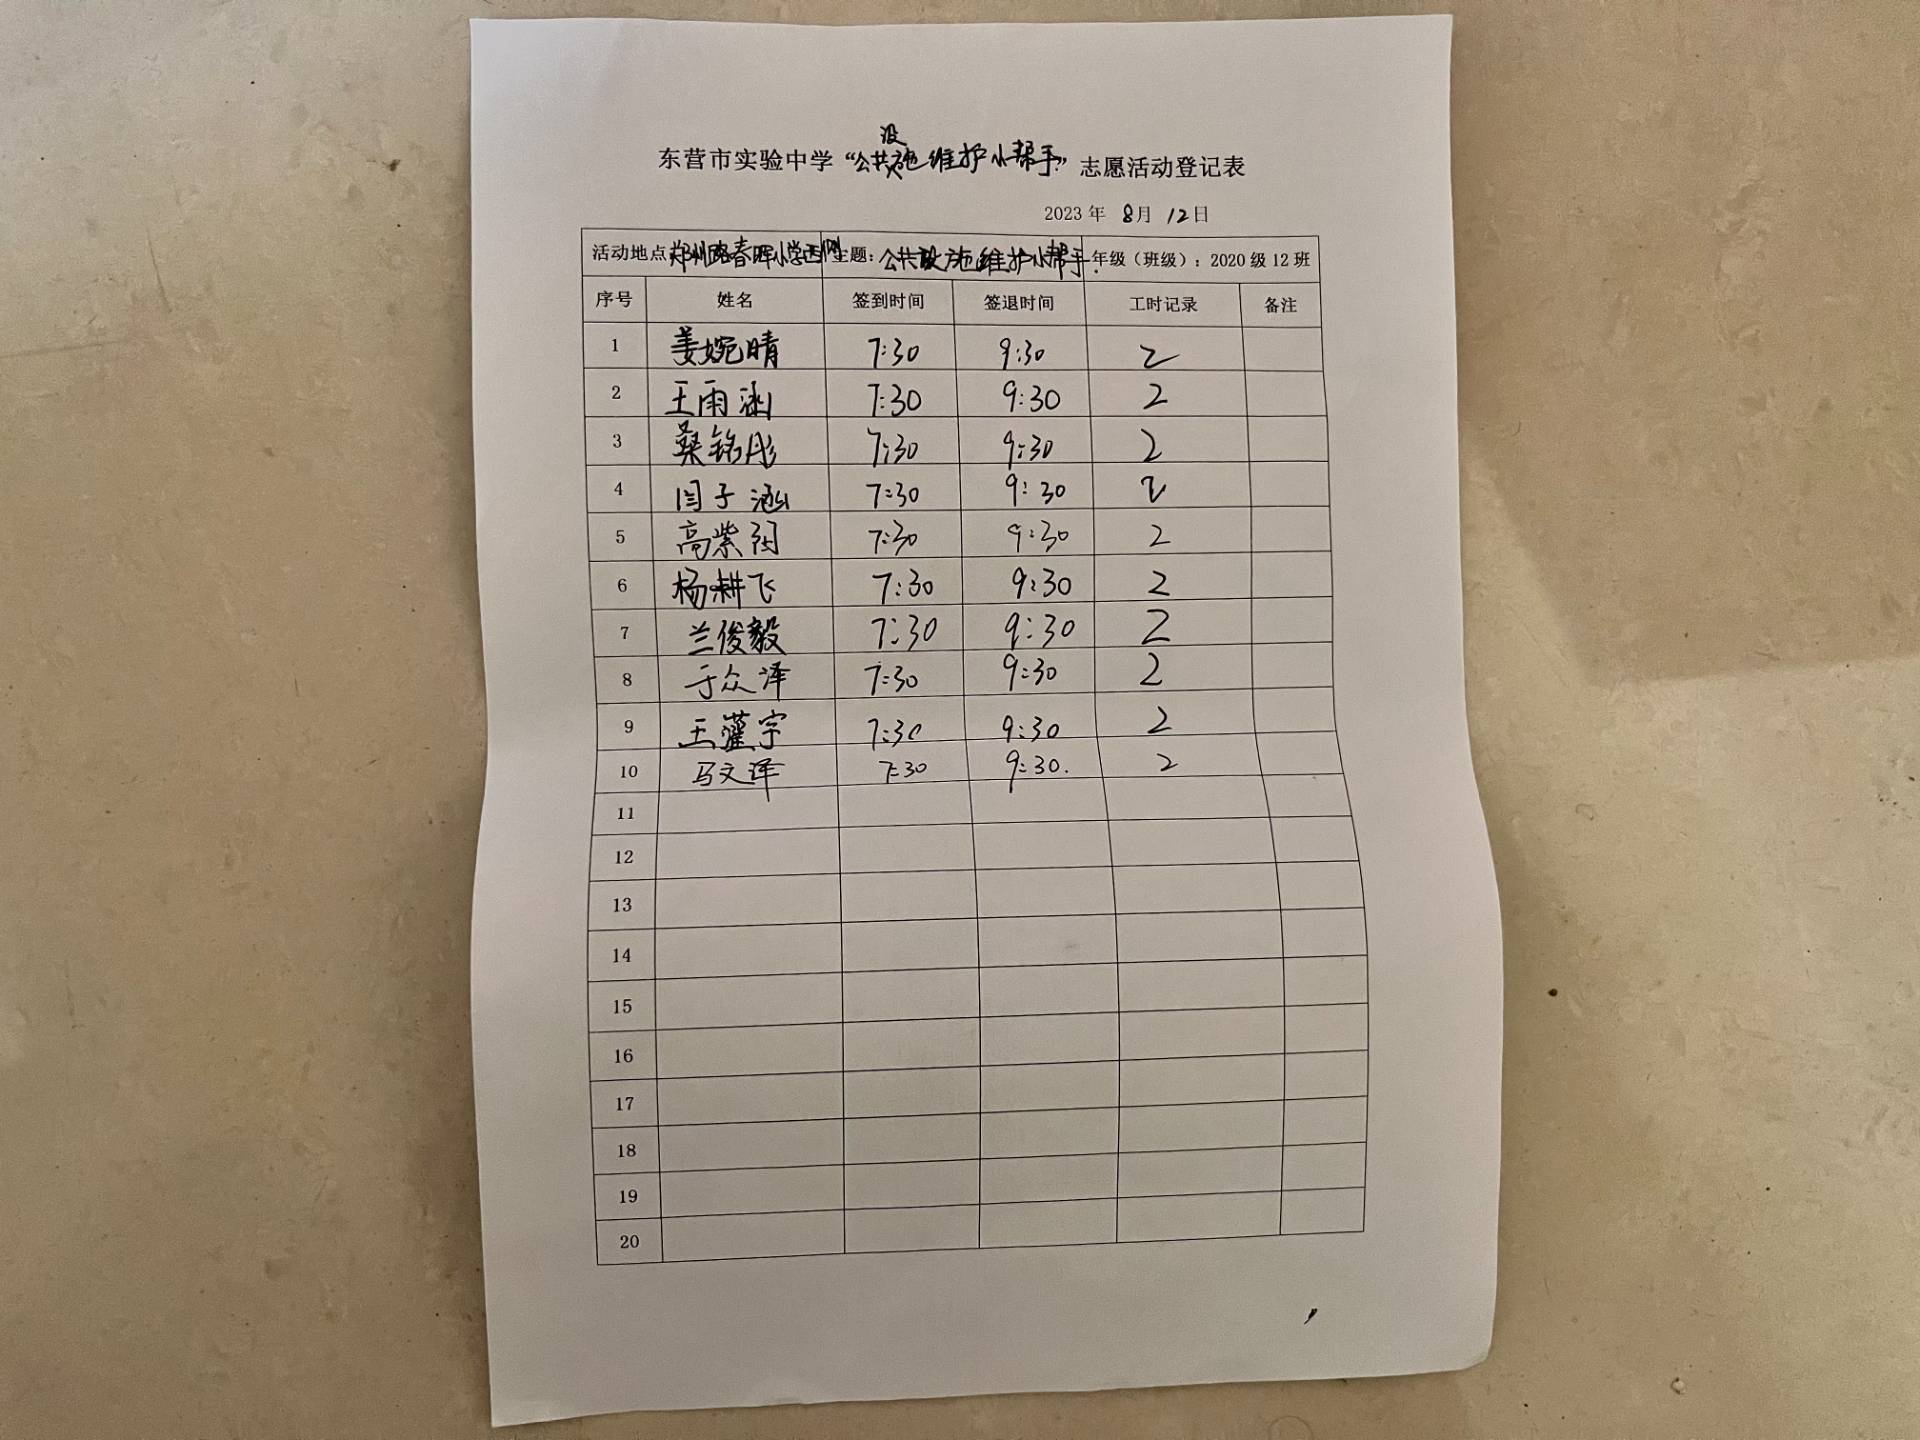 东营市实验中学“公共设施维护小帮手”志愿活动登记表
2023 年 8月 12日
活动地点:郑州路春晖小学西侧 主题:公共设施维护小帮手. 年级(班级):2020 级 12 班
序号 姓名 签到时间 签退时间 工时记录 备注
1 姜婉晴 7:30 9:30 2
2 王雨涵 7:30 9:30 2
3 桑铭彤 7:30 9:30 2
4 闫子涵 7:30 9:30 2
5 高紫闰 7:30 9:30 2
6 杨耕飞 7:30 9:30 2
7 兰俊毅 7:30 9:30 2
8 于众泽 7:30 9:30 2
9 王宇 7:30 9:30 2
10 马文泽 7:30 9:30. 2
11
12
13
14
15
16
17
18
19
20